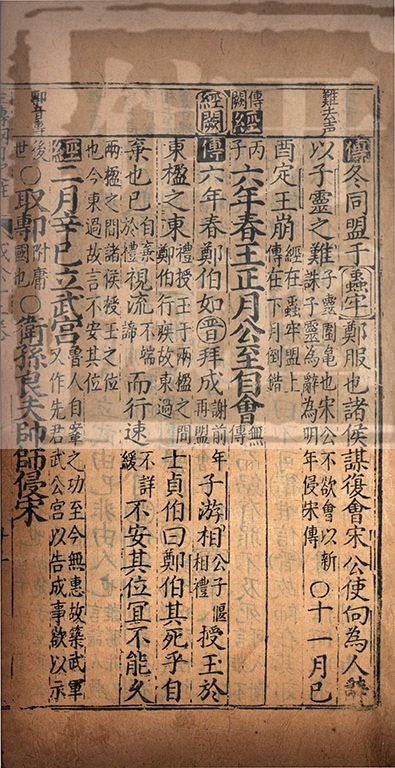 難去声
傳冬同盟于蟲牢鄭服也諸侯謀復會宋公使向為人辭
以子靈之難子靈圍龜也宋公不欲會以新誅子靈為辭為明年侵宋傳○十一月己
酉定王崩經在蟲牢盟上傳在下月倒錯
傳闕經丙子六年春王正月公至自會無傳
經闕傳六年春鄭伯如晉拜成謝前年再盟子游相公子偃相禮授玉於
東楹之東禮授玉于兩楹之間鄭伯行疾故東過士貞伯曰鄭伯其死乎自
棄也已自棄於禮視流不端諦而行速不詳緩不安其位冝不能久
兩楹之間諸侯授玉之位也今東過故言不安其位
經二月辛巳立武宮魯人自鞌之功至今無患故築武軍又作先君武公宮以告成事欲以示
鄟音專
後世○取鄟附庸國也○衛孫良夫帥師侵宋